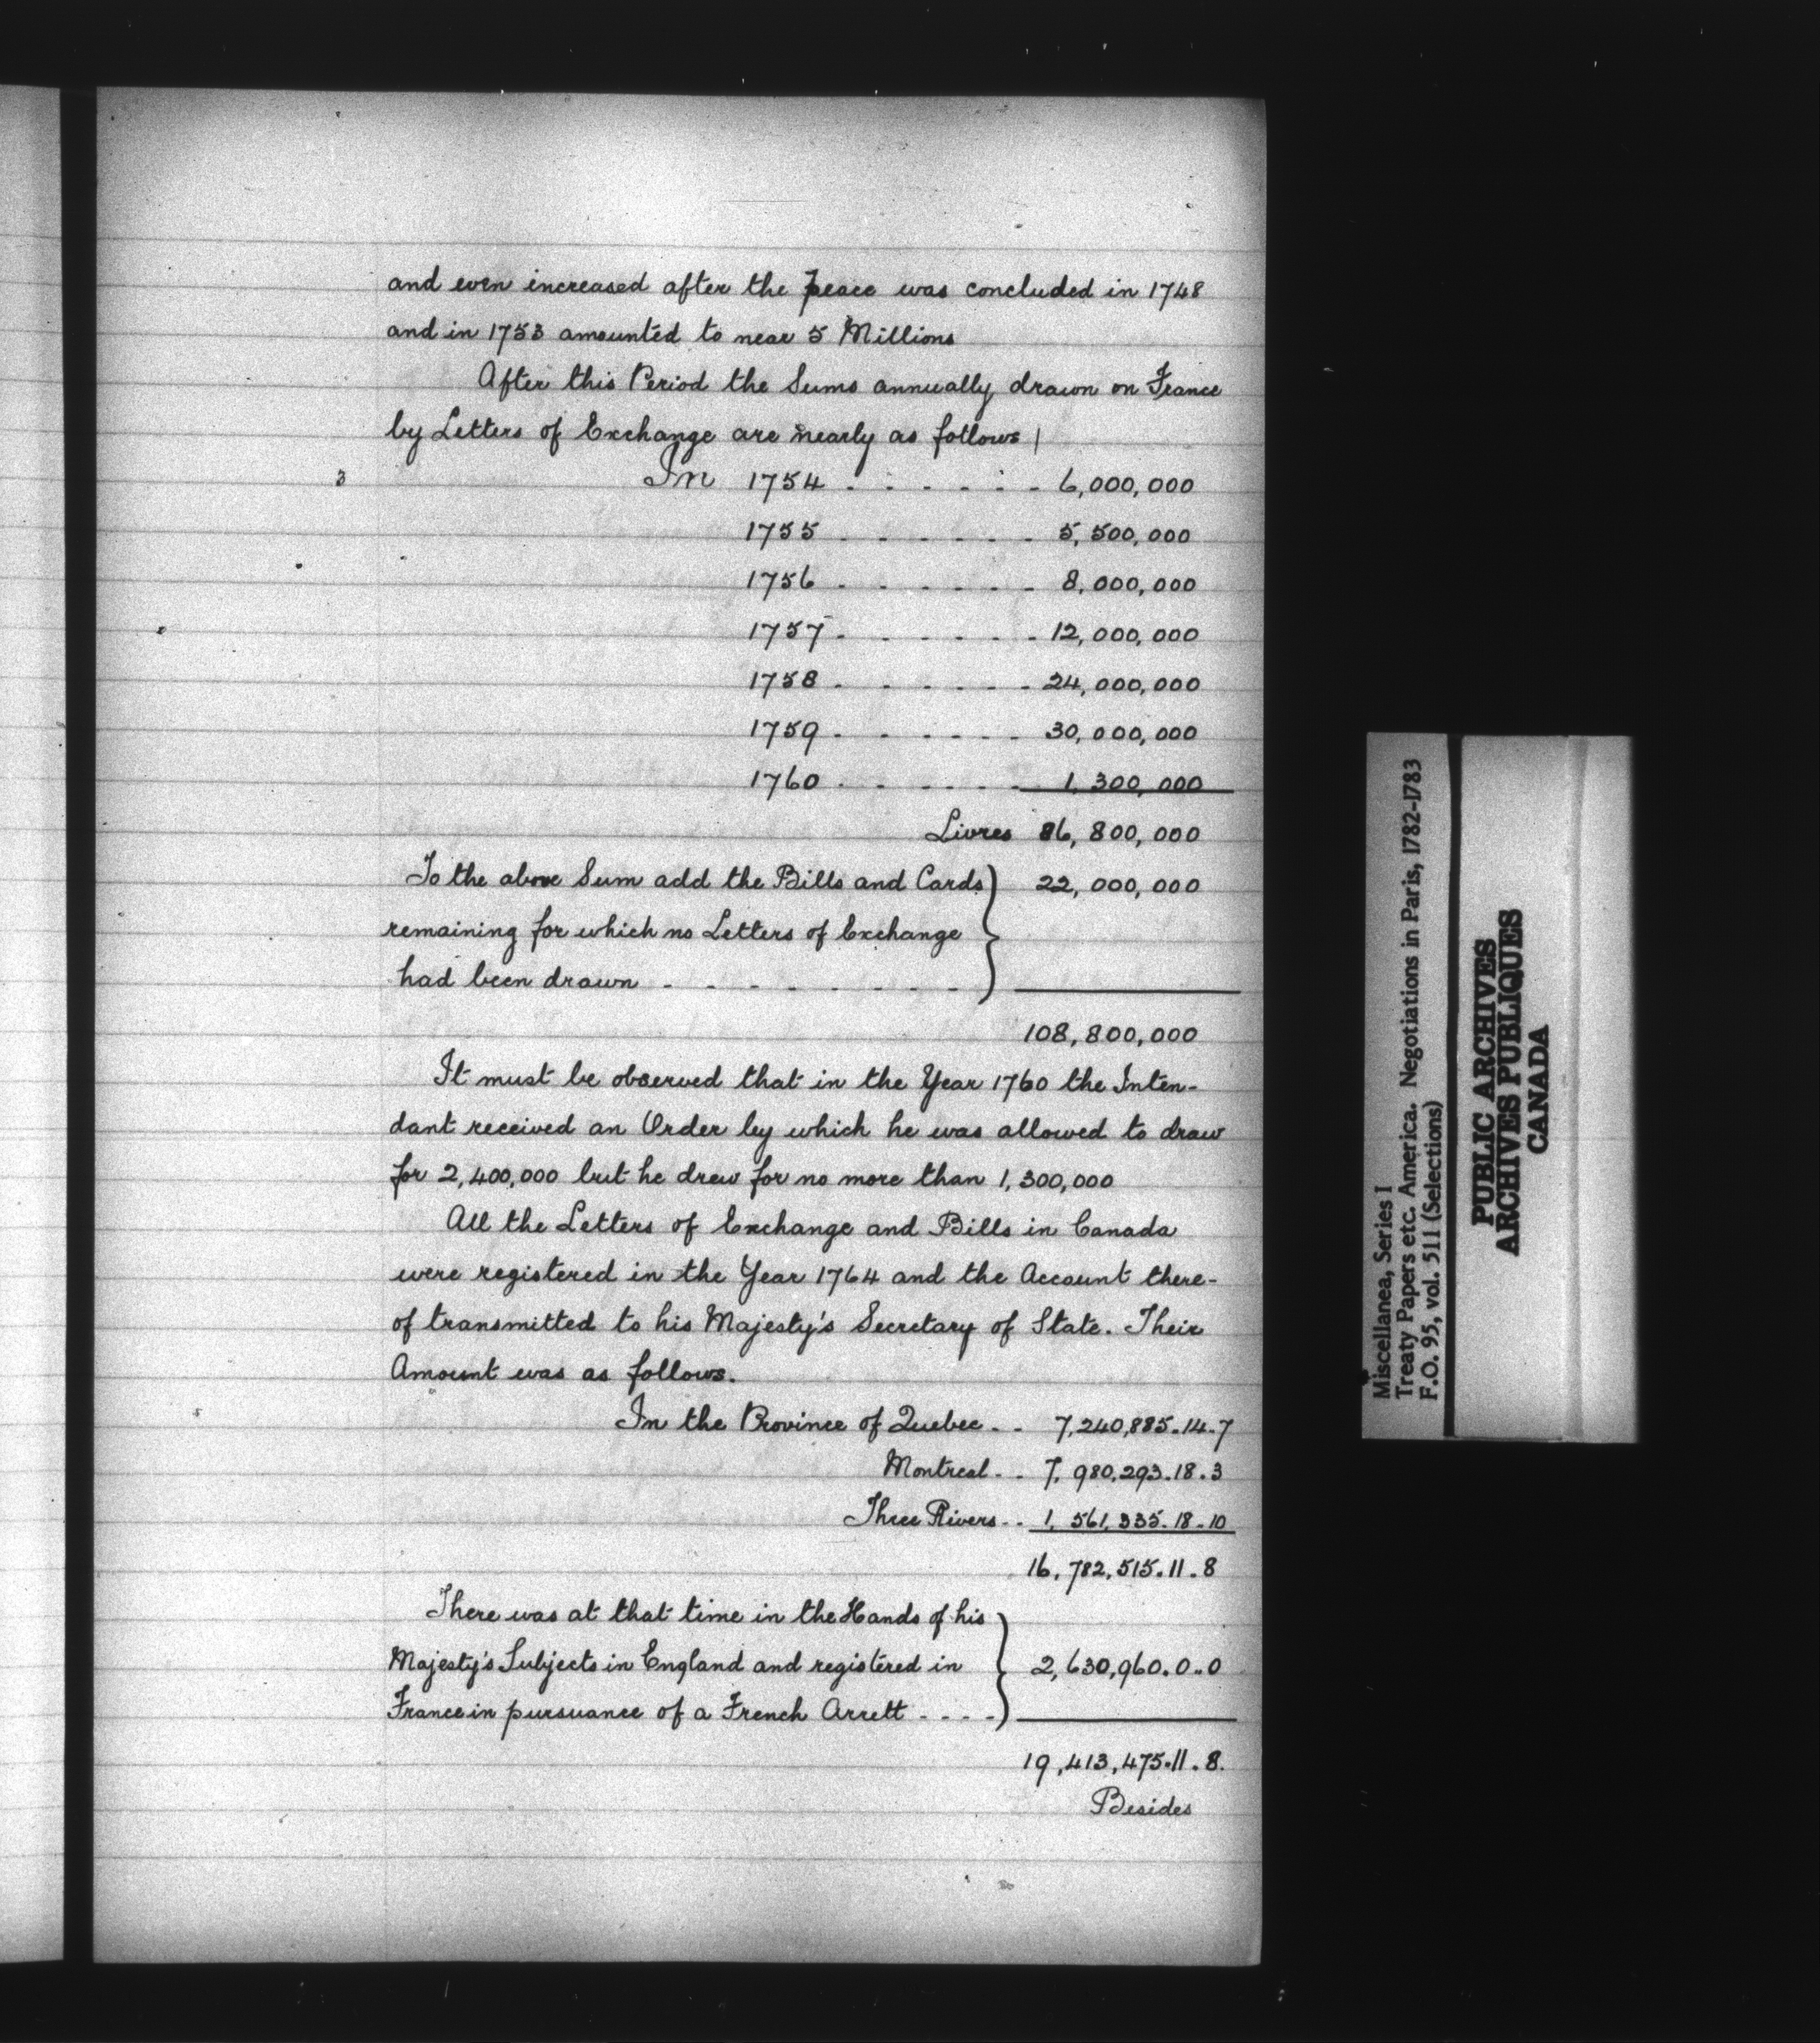 and even increased after the Peace was concluded in 1748
and in 1753 amounted to near 5 Millions
After this Period the Sums annually drawn on France
by Letters of Exchange are nearly as follows |
3 In 1754 . . . . . . 6,000,000
1755 . . . . . . 5,500,000
1756 . . . . . . 8,000,000
1757 . . . . . . 12,000,000
1758 . . . . . . 24,000,000
1759 . . . . . . 30,000,000
1760 . . . . . . 1,300,000
Livres 86,800,000
To the above Sum add the Bills and Cards } 22,000,000
remaining for which no Letters of Exchange
had been drawn - - - - - - - -
108,800,000
It must be observed that in the Year 1760 the Inten-
dant received an Order by which he was allowed to draw
for 2,400,000 but he drew for no more than 1,300,000
All the Letters of Exchange and Bills in Canada
were registered in the Year 1764 and the Account there-
of transmitted to his Majesty's Secretary of State. Their
Amount was as follows.
In the Province of Quebec . . 7,240,885.14.7
Montreal . . 7,980,293.18.3
Three Rivers . . 1,561,335.18.10
16,782,515.11.8
There was at that time in the Hands of his
Majesty's Subjects in England and registered in } 2,630,960.0.0
France in pursuance of a French Arrett - - - -
19,413,475.11.8.
Besides
Miscellanea, Series I
Treaty Papers etc. America. Negotiations in Paris, 1782-1783
F.O. 95, vol. 511 (Selections)
PUBLIC ARCHIVES
ARCHIVES PUBLIQUES
CANADA